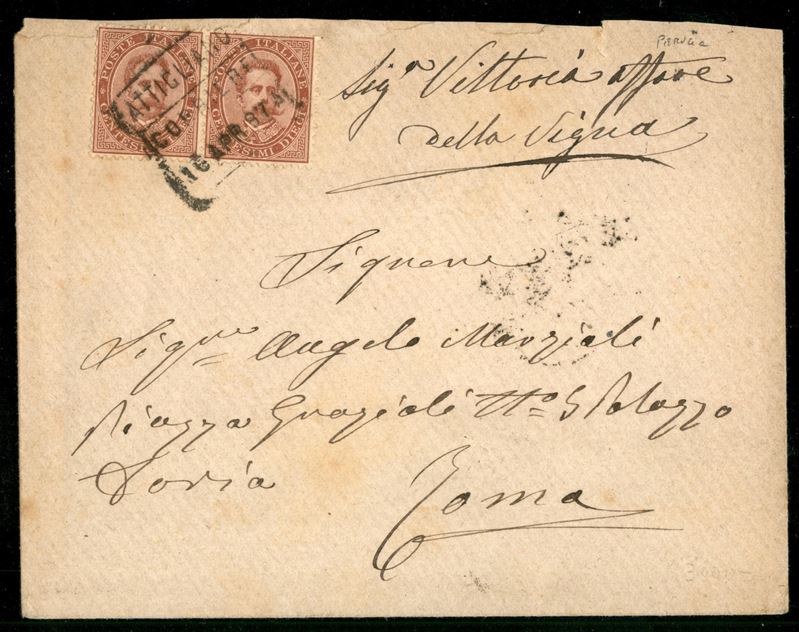 POSTE ITALIANE
CENTESIMI DIECI
POSTE ITALIANE
CENTESIMI DIECI
ATTIGLIANO
16 APR. 97
Perugia
Sig.ª Vittoria affare
della Vigna
Signore
Sig.re Angelo Marziali
Piazza Grazioli N.o 5 Palazzo
Doria
Roma